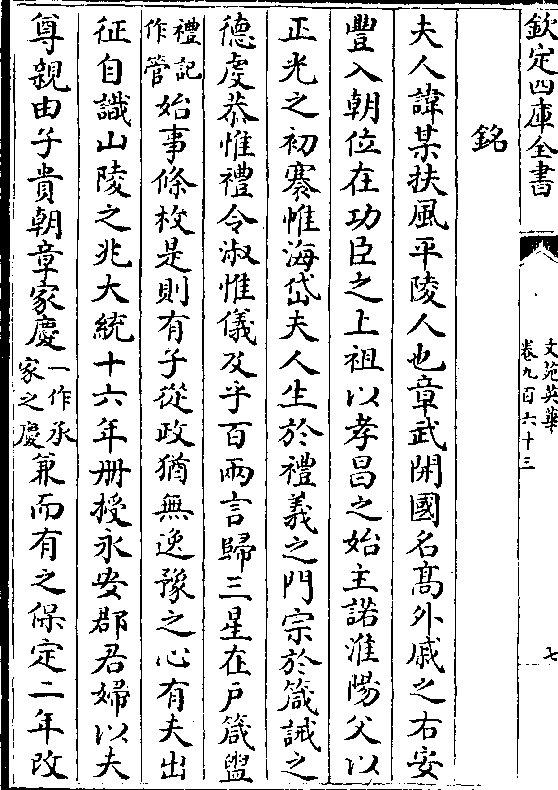 欽定四庫全書
文苑英華
卷九百六十三
七
銘
夫人諱某扶風平陵人也章武開國名髙外戚之右安
豐入朝位在功臣之上祖以孝昌之始主諾淮陽父以
正光之初褰帷海岱夫人生於禮義之門宗於箴誡之
德虔恭惟禮令淑惟儀及乎百兩言歸三星在戸箴盥
禮記
作管
始事條枚是則有子從政猶無逸豫之心有夫出
征自識山陵之兆大統十六年册授永安郡君婦以夫
尊親由子貴朝章家慶
一作承
家之慶
兼而有之保定二年改